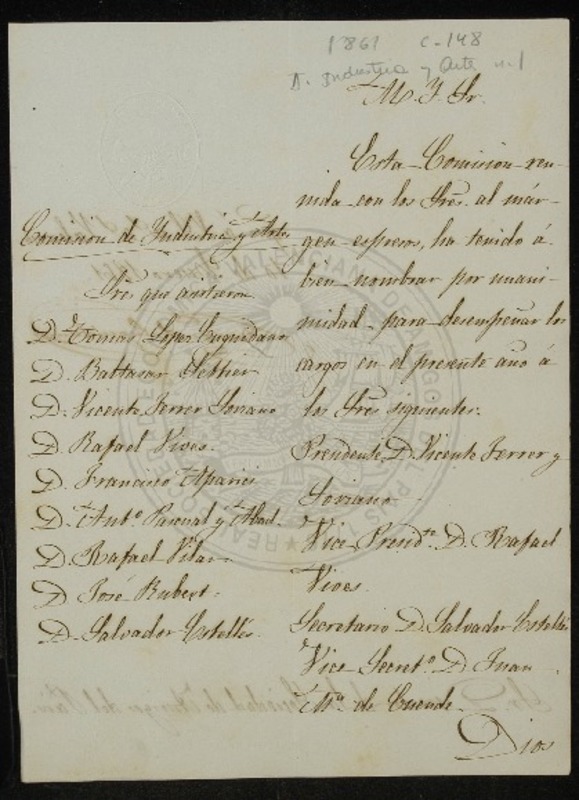 1861 C-148
D. Industria y Arte n.1
M. Y. Sr.
Comision de Industria y Artes
Sres que asistieron
D. Tomas Lopez
D. Baltasar Settier
D. Vicente Ferrer Soriano
D. Rafael Vives
D. Francisco Aparici
D. Antº Pascual y Abad
D. Rafael Vilar
D. José Rubert
D. Salvador Estellés
Esta Comision reu-
nida con los Sres. al már-
gen espresos, ha tenido á
bien nombrar por unani-
midad para desempeñar los
cargos en el presente año á
los Sres siguientes:
Presidente D. Vicente Ferrer y
Soriano
Vice-Presid.te D. Rafael
Vives
Secretario D. Salvador Estellés
Vice Secret.º D. Juan
Mª. de Cuende.
Dios